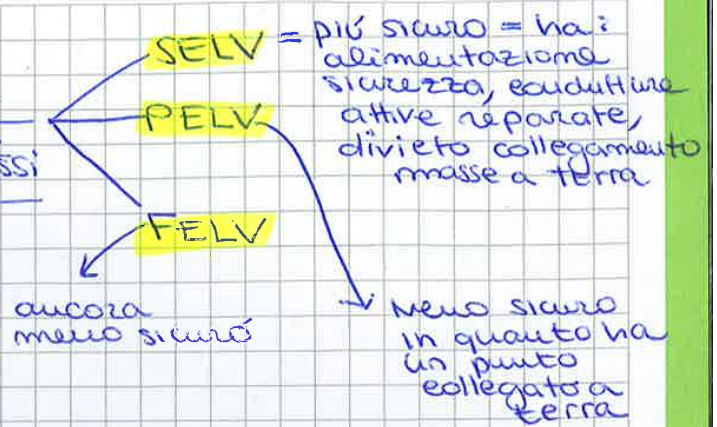 SELV = più sicuro = ha:
alimentazione
sicurezza, condutture
attive separate,
divieto collegamento
masse a terra
PELV
ssi
FELV
ancora
meno sicuró
Meno sicuro
in quanto ha
un punto
collegato a
terra